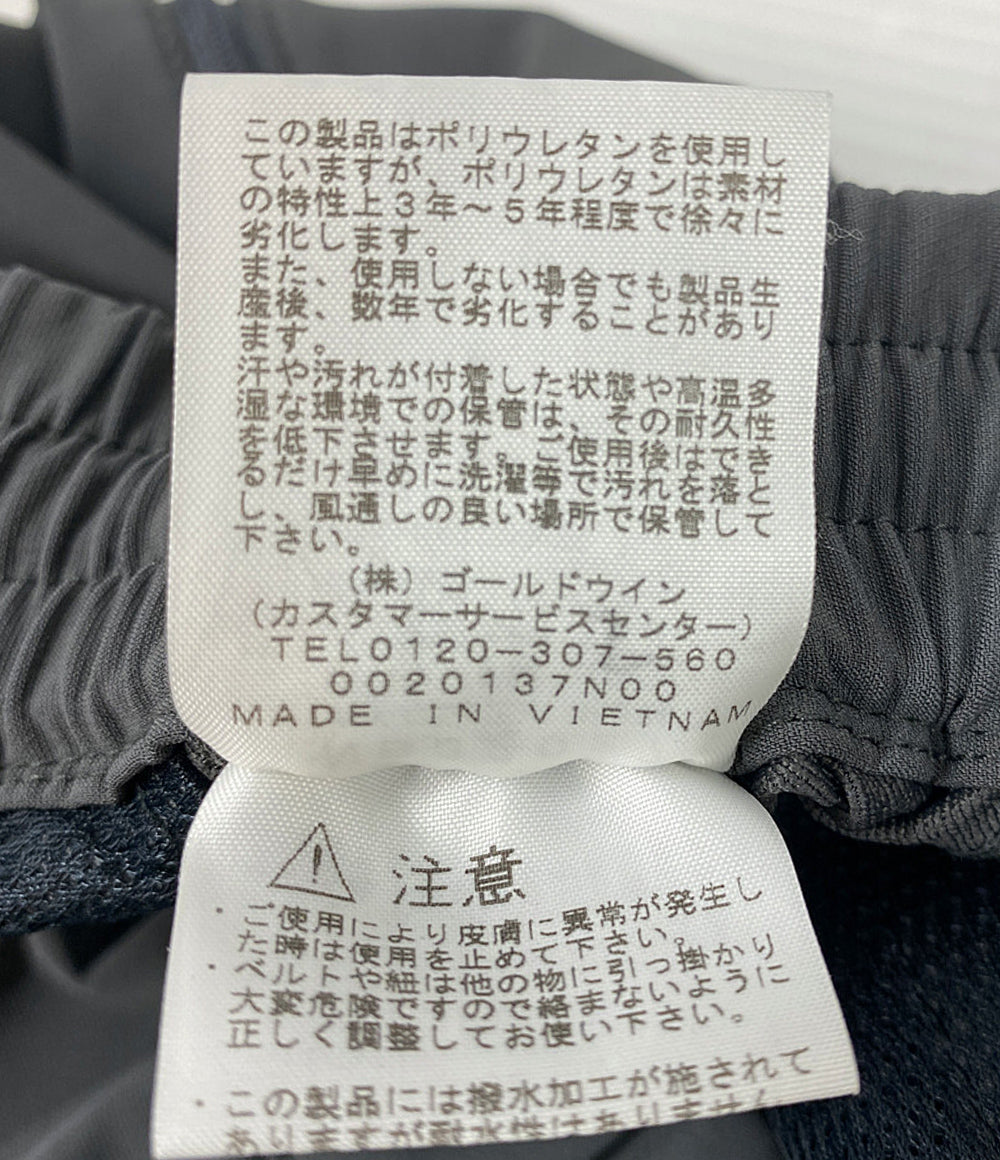 この製品はポリウレタンを使用し
ていますが、ポリウレタンは素材
の特性上3年〜5年程度で徐々に
劣化します。
また、使用しない場合でも製品生
産後、数年で劣化することがあり
ます。
汗や汚れが付着した状態や高温多
湿な環境での保管は、その耐久性
を低下させます。ご使用後はでき
るだけ早めに洗濯等で汚れを落と
し、風通しの良い場所で保管して
下さい。
(株)ゴールドウイン
(カスタマーサービスセンター)
TEL0120-307-560
0020137N00
MADE IN VIETNAM
⚠ 注意
・ご使用により皮膚に異常が発生し
た時は使用を止めて下さい。
・ベルトや紐は他の物に引っ掛かり
大変危険ですので絡まないように
正しく調整してお使い下さい。
・この製品には撥水加工が施されて
ありますが耐水性はありません